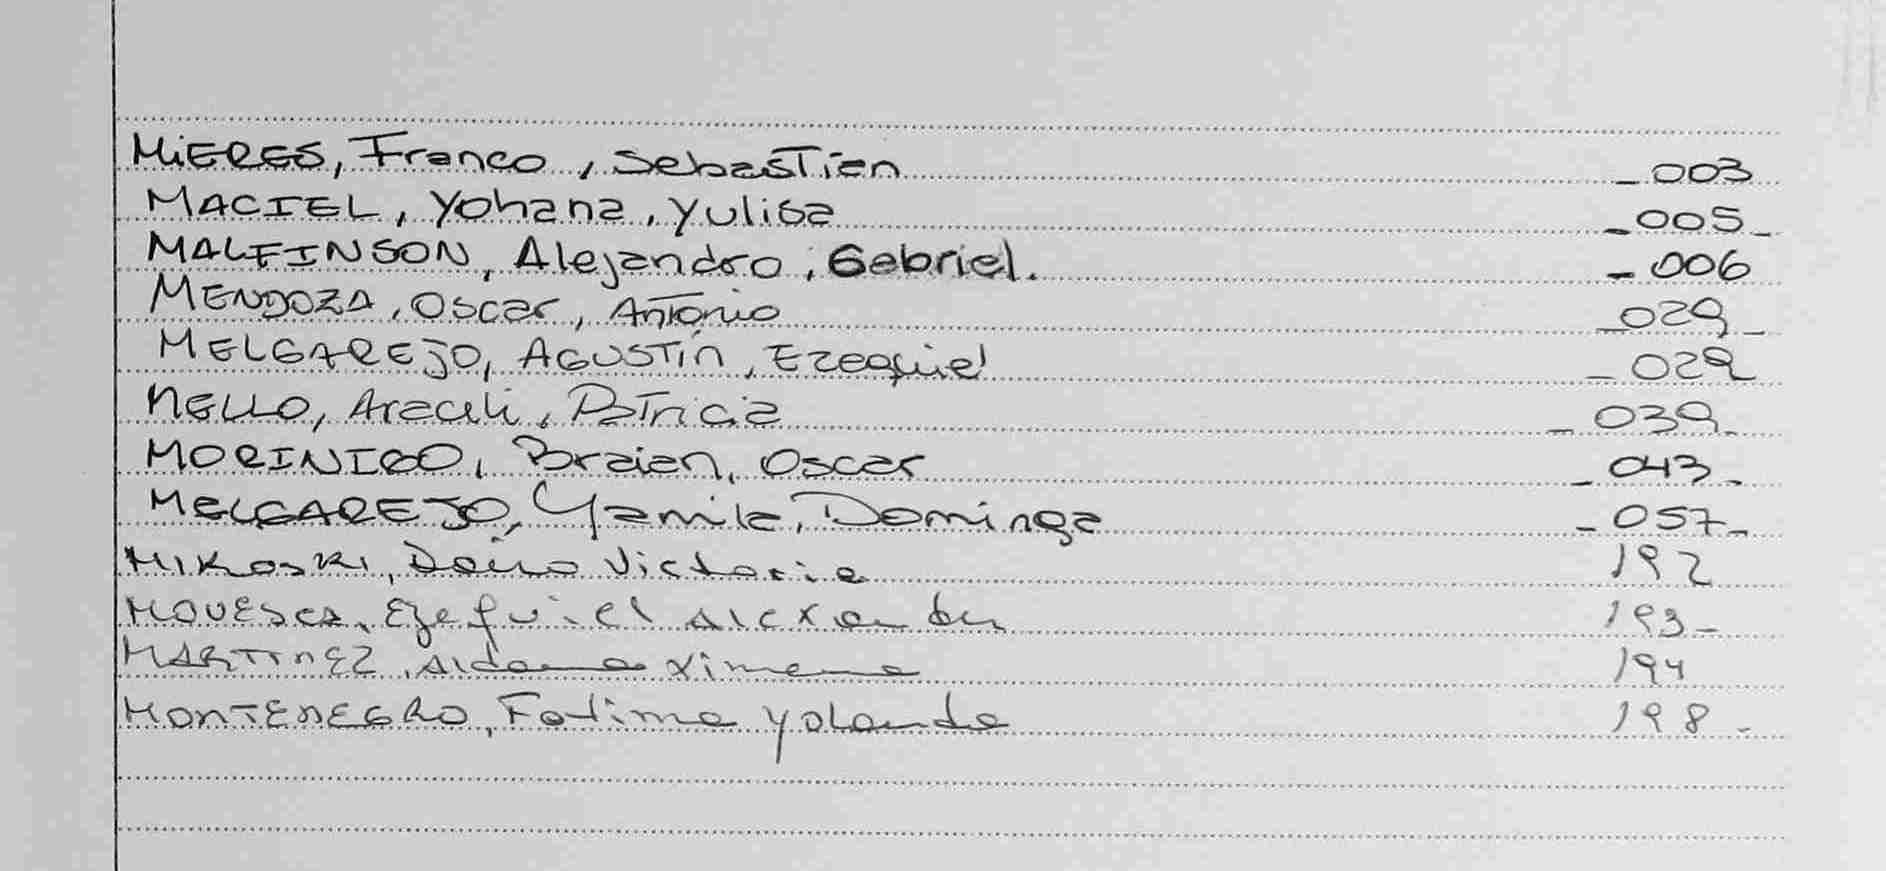 MiERES, Franco, Sebastian _003
MACIEL, Yohana, Yulisa _005_
MALFINSON, Alejandro, Gabriel. _006
MENDOZA, Oscar, Antonio _029_
MELGAREJO, AGUSTIN, Ezequiel _029
MELLO, Araceli, Patricia _039_
MORINIGO, Braian, Oscar _043_
MELGAREJO, Yamila, Dominga _057_
MIKOSKI, Victoria 192
Ezequiel Alexander 193_
MARTINEZ, Aldana Ximena 194
MONTENEGRO, Fatima Yolanda 198_